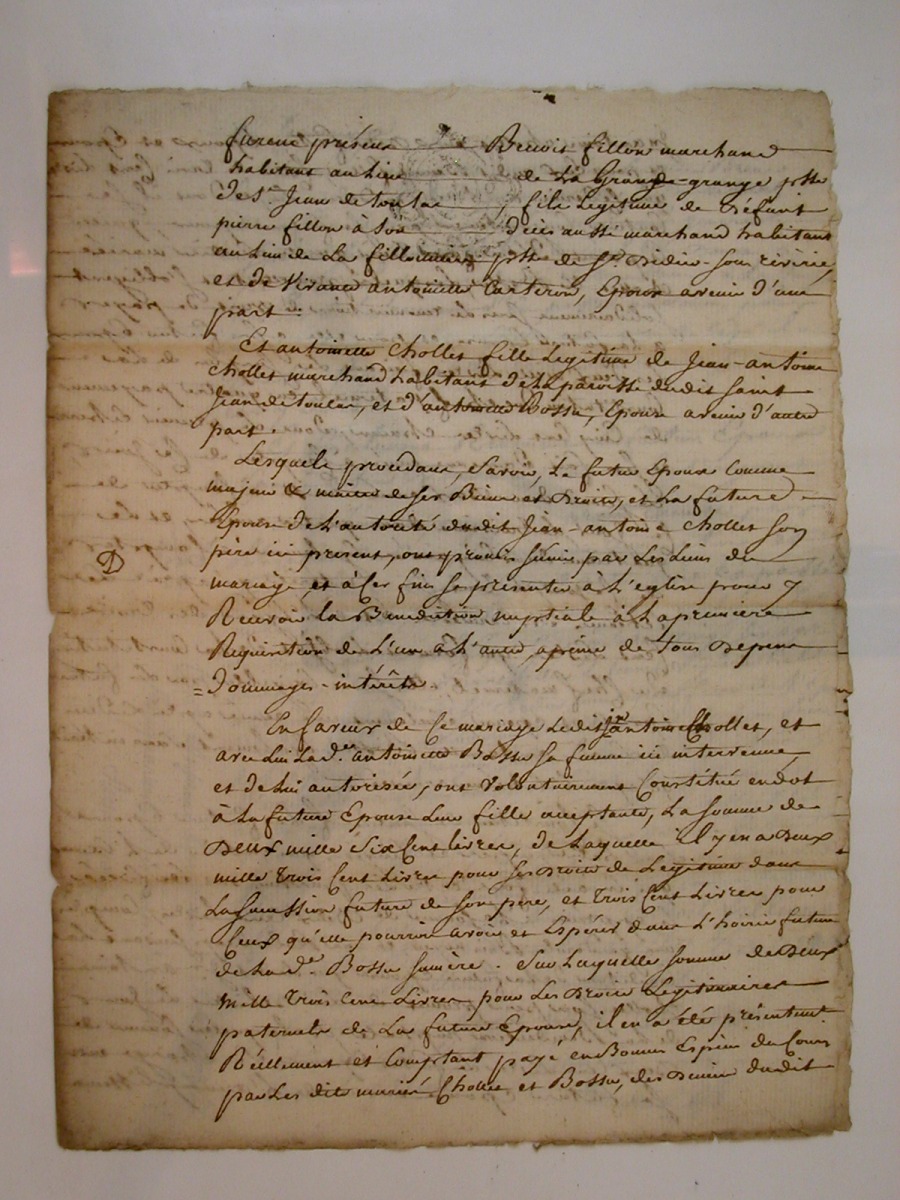 furent présens Benoit fillon marchand
habitant au lieu de La Grande-grange psse
de St. Jean de toulas, fils Legitime de Défunt
pierre fillon à Son décès aussi marchand habitant
au Lieu de La fillonniere psse de St. Didier-sous riverie,
et de vivante antoinette Carteron, Epoux avenir d'une
part.
Et antoinette Chollet fille Legitime de Jean-antoine
Chollet marchand habitant de la paroisse dudit Saint
Jean de toulas, et d'antoinette Bossu, Epouse avenir d'autre
part.
Lesquels procédans, Savoir, Le futur Epoux Comme
majeur & maitre de ses Biens et Droits, et La future
Epouse de L'autorité dudit Jean-antoine Chollet Son
père ici présent, ont promis s'unir par Les Liens du
D
mariage et à Ces fins Se présenter à L'eglise pour y
Recevoir la Benediction nuptiale à La premiere
Requisition de L'un à L'autre, apeine de tous Depens
= Dommages-intérêts
En faveur de Ce mariage Ledit jn antoine Chollet, et
avec Lui La de. antoinette Bossu Sa femme ici intervenue,
et de Lui autorisée, ont volontairement Constitué en dot
à La future Epouse Leur fille acceptante, La Somme de
Deux mille Six Cent Livres, de Laquelle il y en a Deux
mille trois Cent Livres pour Ses Droits de Legitime dans
La Succession future de Son père, et trois Cent Livres pour
Ceux qu'elle pourroit avoir et Espérer dans L'hoirie future
de La de. Bossu Sa mère. Sur Laquelle Somme de Deux
mille trois Cent Livres pour Les Droits Legitimaires
paternels de La future Epouse, il en a été présentement
Réellement et Comptant payé en Bonnes Espèces du Cours
par Les dits mariés Chollet et Bossu, des Deniers dudit